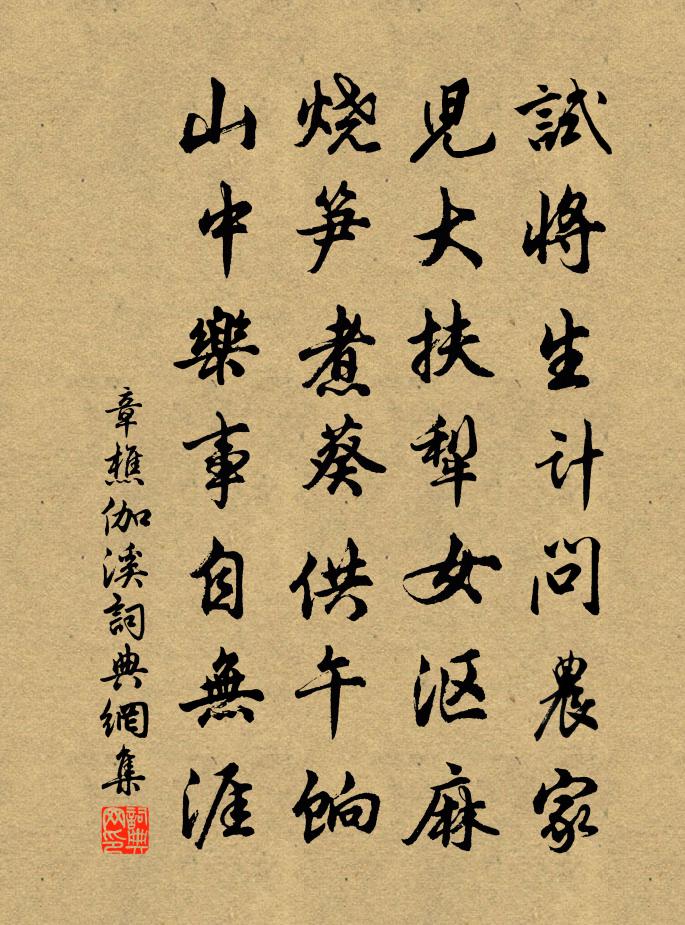 試將生計問農家
児大扶犂女漚麻
燒笋煮葵供午餉
山中樂事自無涯
章樵伽溪詞典網集
詞典网印